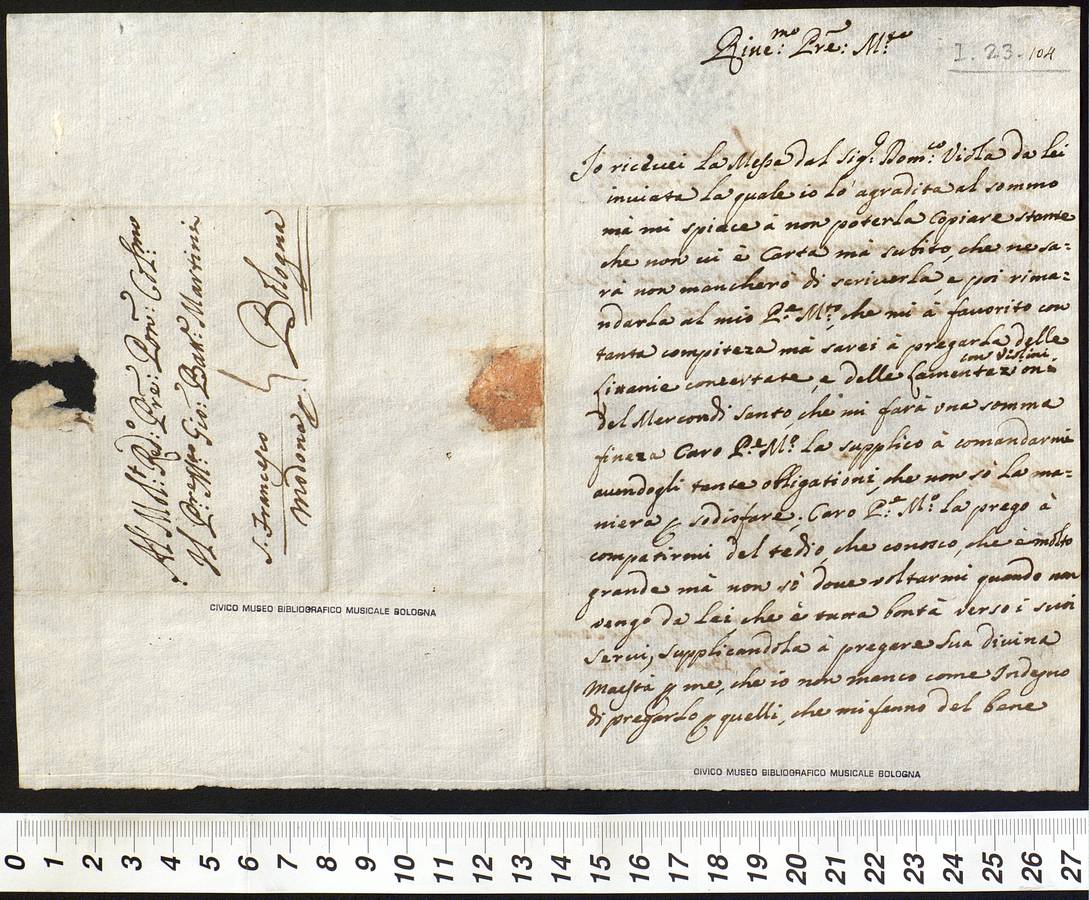 Al Mol:t Rdo: Pre: Pron: Col:mo
Il P. Mro Gio: Batta Martini
S. Francesco
Bologna
Modona p.
CIVICO MUSEO BIBLIOGRAFICO MUSICALE BOLOGNA
Rive:mo Pre: M:ro
I. 23. 104
Io riceuei la Messa dal Sig:r Dom:co Viola da lei
inuiata la quale io lò agradita al sommo
mà mi spiace à non poterla Copiare stante
che non ui è Carta mà subito, che ne sa=
rà non mancherò di scriuerla, e poi rima=
ndarla al mio P.re M:ro, che mi à fauorito con
tanta compiteza mà sarei à pregarla delle
Littanie concertate, e delle Lamentazioni
con Violini
del Mercordi Santo, che mi farà una somma
fineza Caro P.re M:o la supplico à comandarmi
auendogli tante obligationi, che non sò la ma=
niera p sodisfare, Caro P.re M:o la prego à
compatirmi del tedio, che conosco, che è molto
grande mà non sò doue uoltarmi quando non
vengo da Lei che è tutta bontà verso i suoi
serui, supplicandola à pregare Sua diuina
Maestà p me, che io non manco come Indegno
di pregarlo p quelli, che mi fenno del bene
CIVICO MUSEO BIBLIOGRAFICO MUSICALE BOLOGNA
0 1 2 3 4 5 6 7 8 9 10 11 12 13 14 15 16 17 18 19 20 21 22 23 24 25 26 27